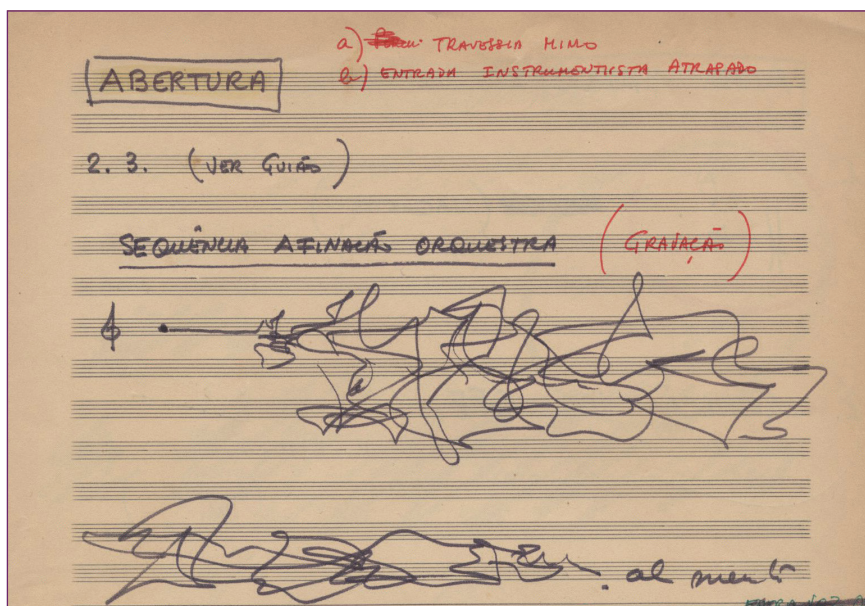 a) TRAVESSIA MIMO
ABERTURA
b) ENTRADA INSTRUMENTISTA ATRASADO
2. 3. (VER GUIÃO)
SEQUÊNCIA AFINAÇÃO ORQUESTRA (GRAVAÇÃO)
al niente